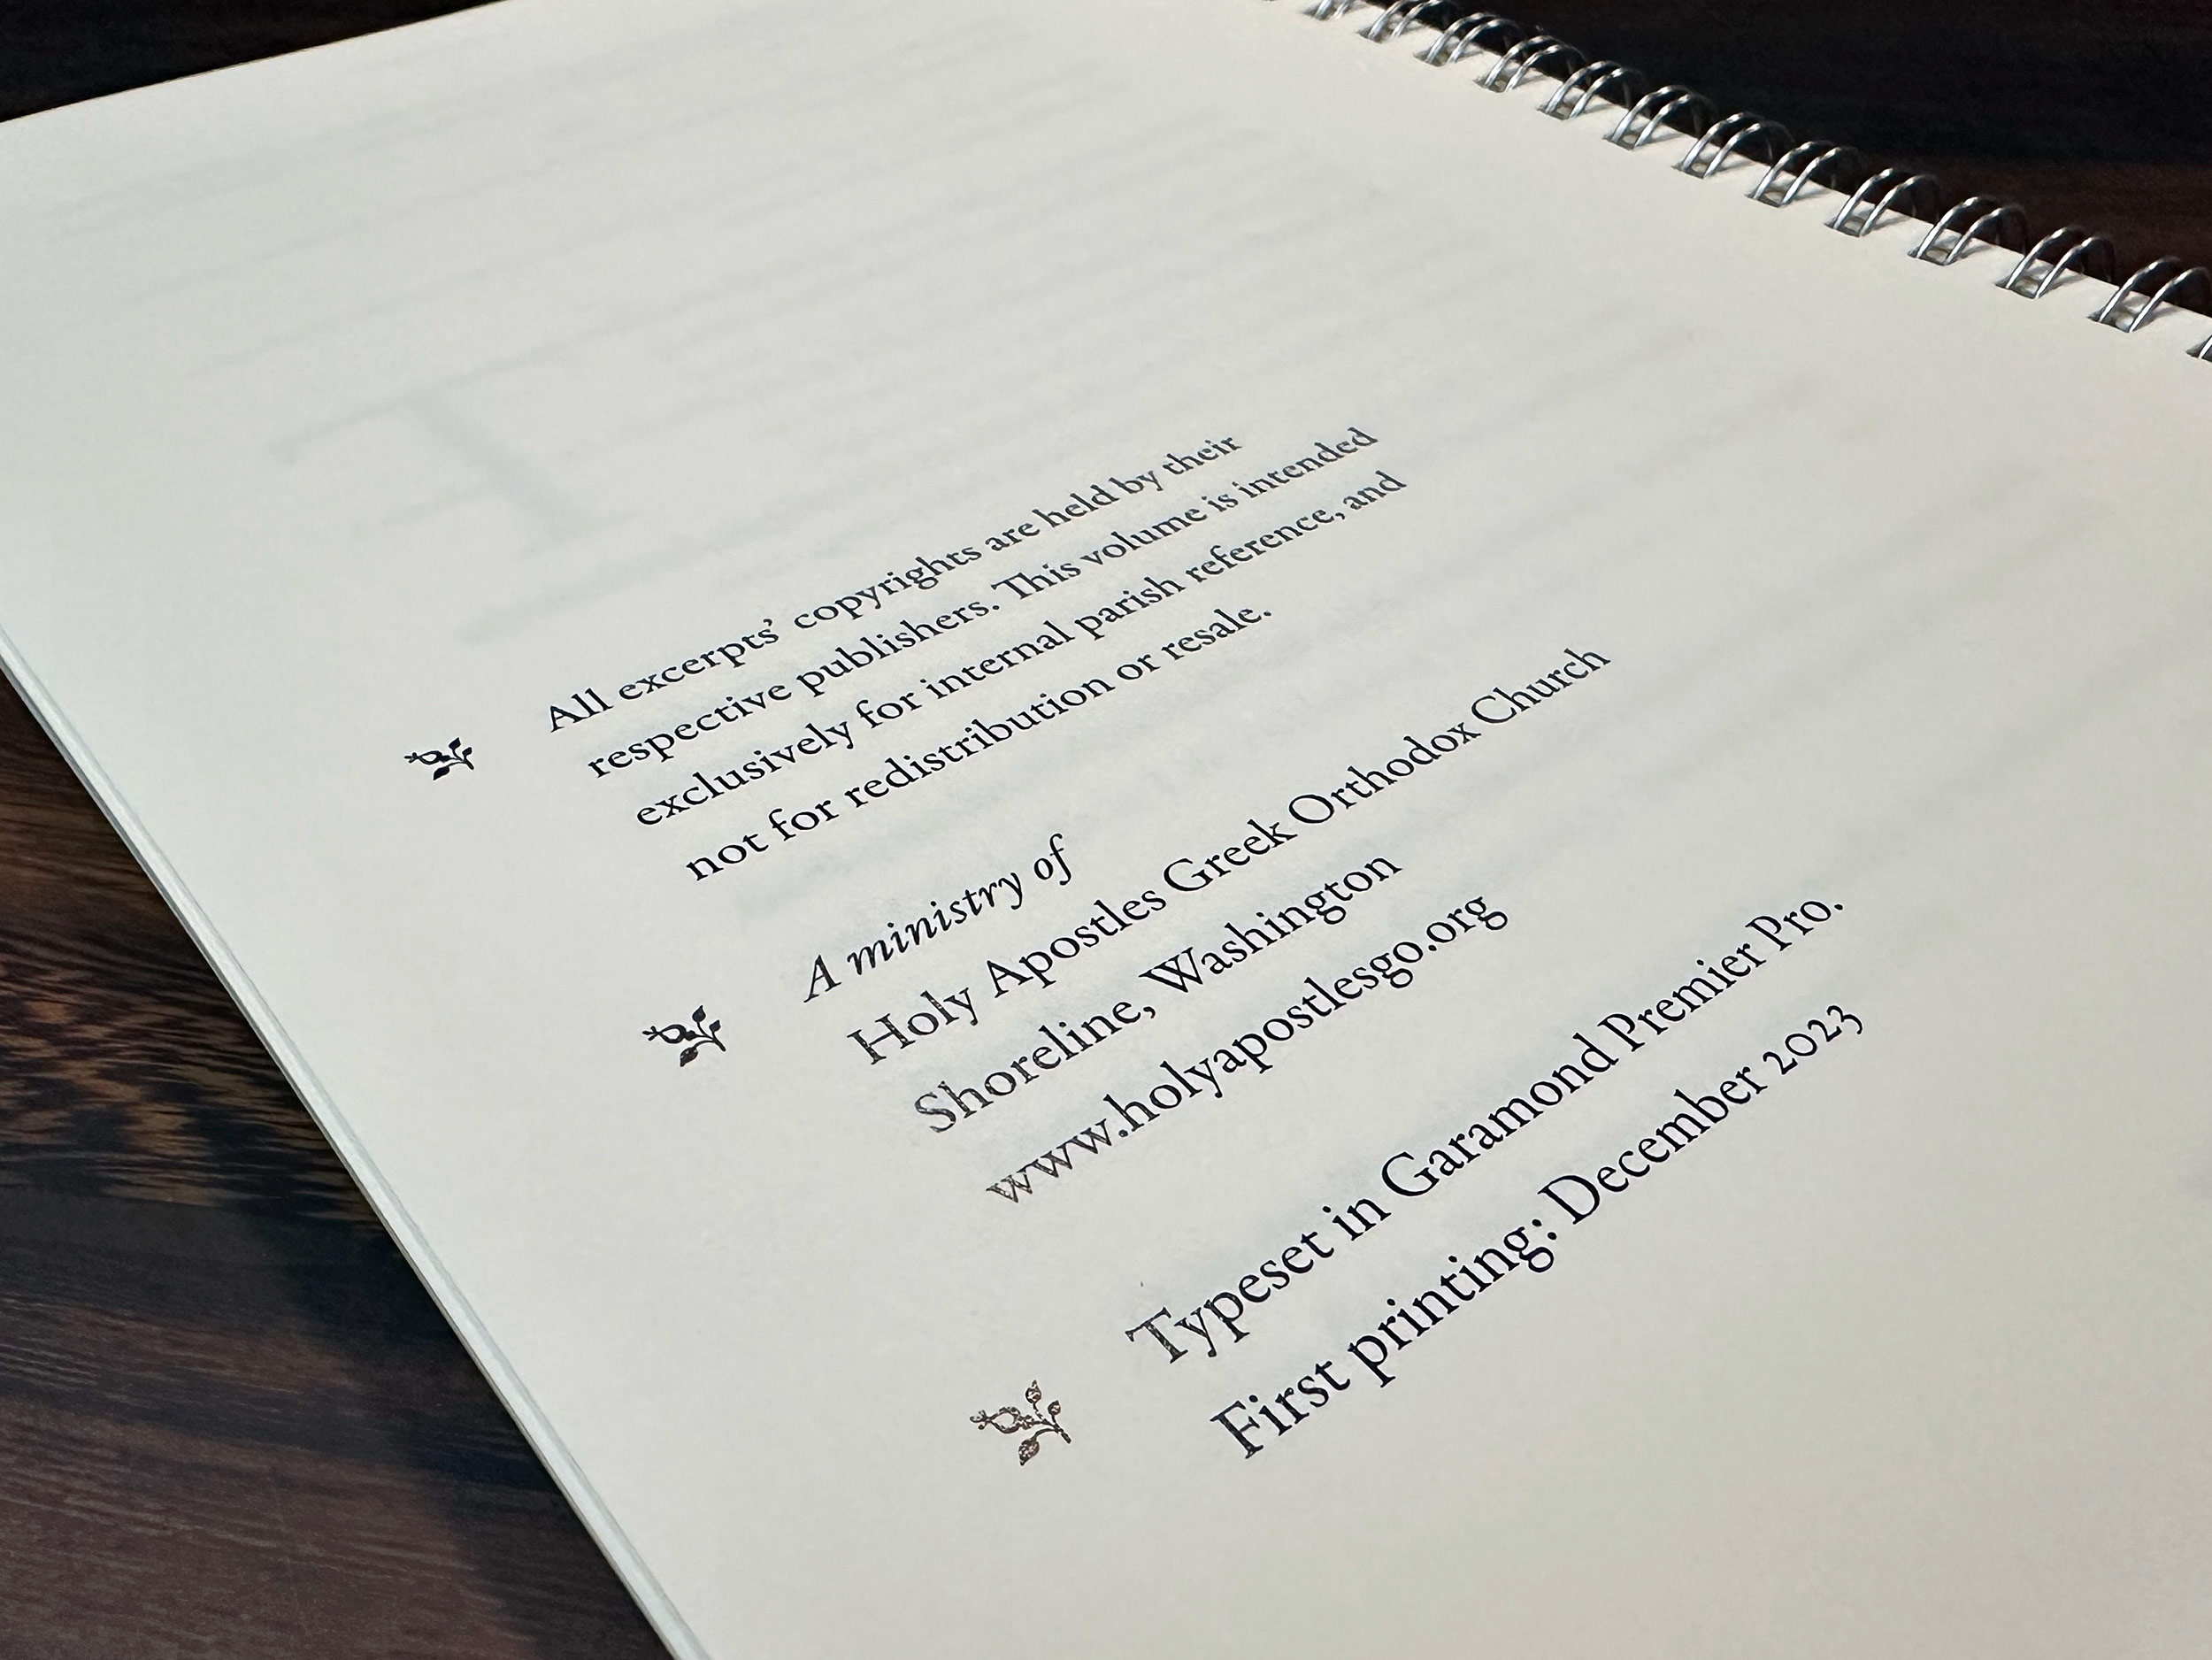 All excerpts’ copyrights are held by their
respective publishers. This volume is intended
exclusively for internal parish reference, and
not for redistribution or resale.
A ministry of
Holy Apostles Greek Orthodox Church
Shoreline, Washington
www.holyapostlesgo.org
Typeset in Garamond Premier Pro.
First printing: December 2023